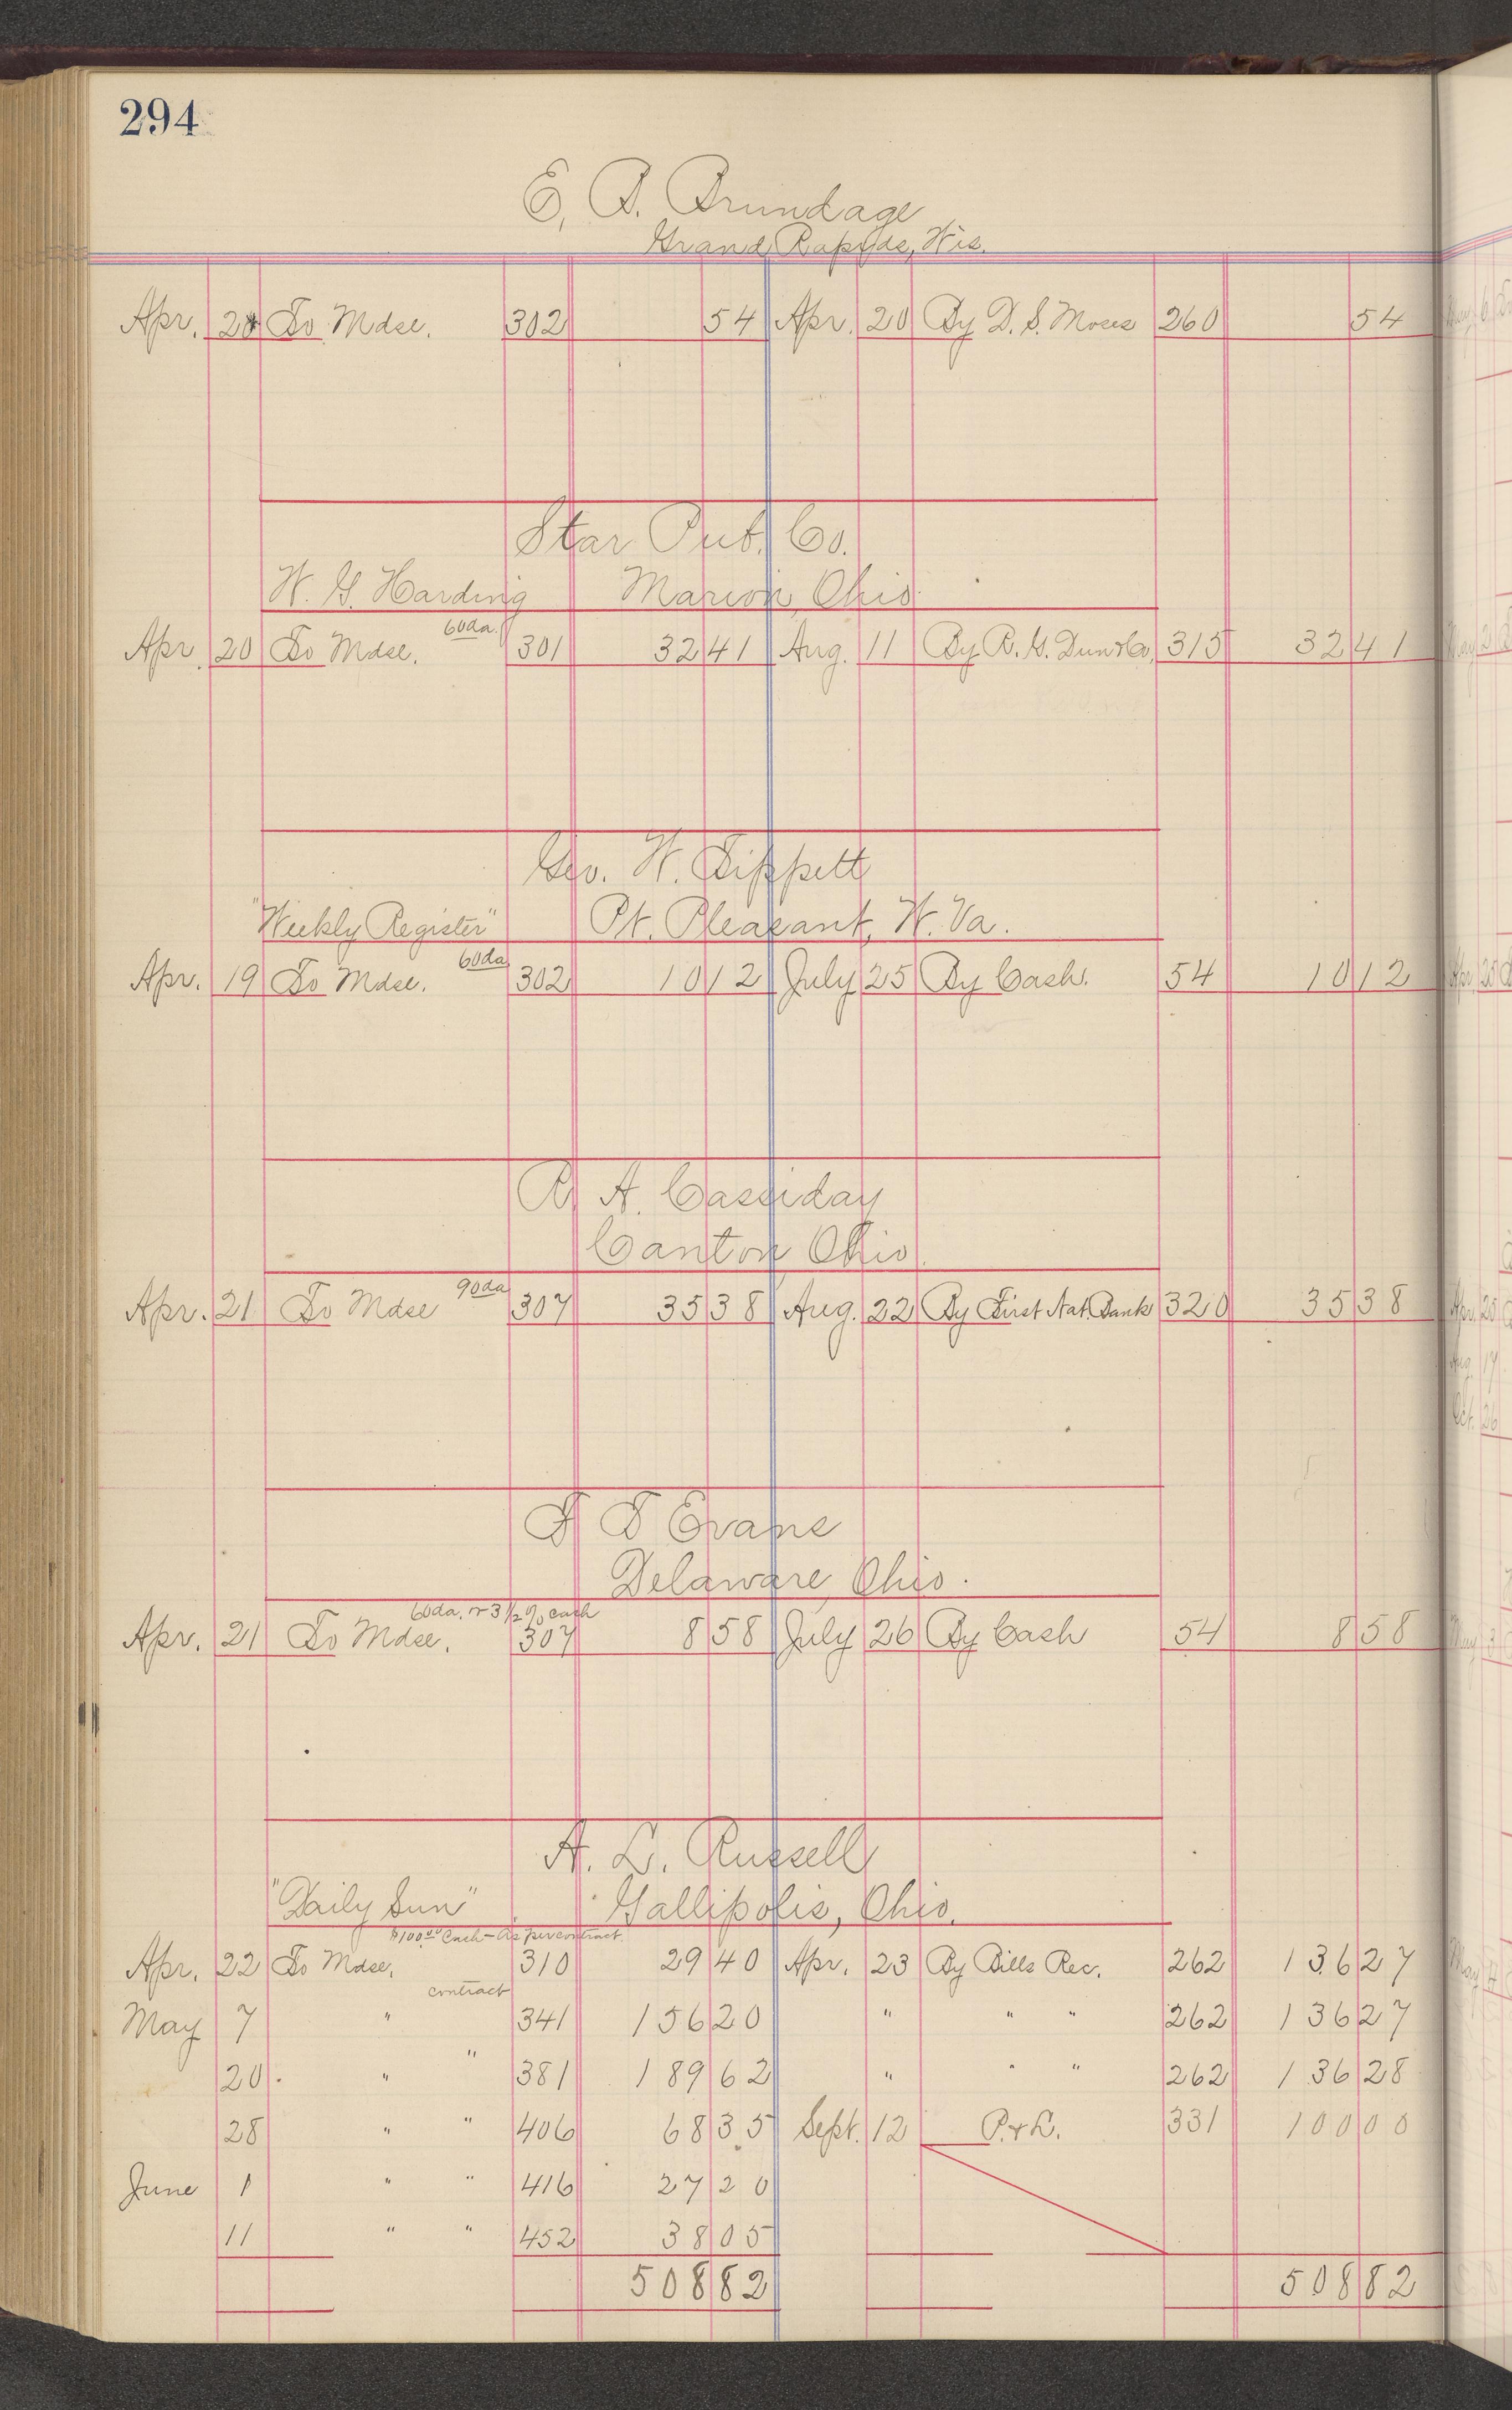 294
E. B. Brundage
Grand Rapids, Wis.
Apr. 20 To Mdse. 302 54 Apr. 20 By D. S. Moses 260 54
Star Pub. Co.
W. G. Harding Marion, Ohio
60da.
Apr. 20 To Mdse. 301 32 41 Aug. 11 By R. G. Dun & Co. 315 32 41
Geo. W. Tippett
"Weekly Register" Pt. Pleasant, W. Va.
60da
Apr. 19 To Mdse. 302 10 12 July 25 By Cash. 54 10 12
R. A. Cassiday
Canton, Ohio.
90da
Apr. 21 To Mdse 307 35 38 Aug. 22 By First Nat. Bank 320 35 38
T T Evans
Delaware, Ohio.
60da. or 3 1/2 % cash
Apr. 21 To Mdse. 307 8 58 July 26 By Cash 54 8 58
A. L. Russell
"Daily Sun" Gallipolis, Ohio.
$100.00 Cash - As per contract
Apr. 22 To Mdse. 310 29 40 Apr. 23 By Bills Rec. 262 136 27
contract
May 7 " 341 156 20 " " " 262 136 27
20 " " 381 189 62 " " " 262 136 28
28 " " 406 68 35 Sept. 12 P. & L. 331 100 00
June 1 " " 416 27 20
11 " " 452 38 05
508 82 508 82